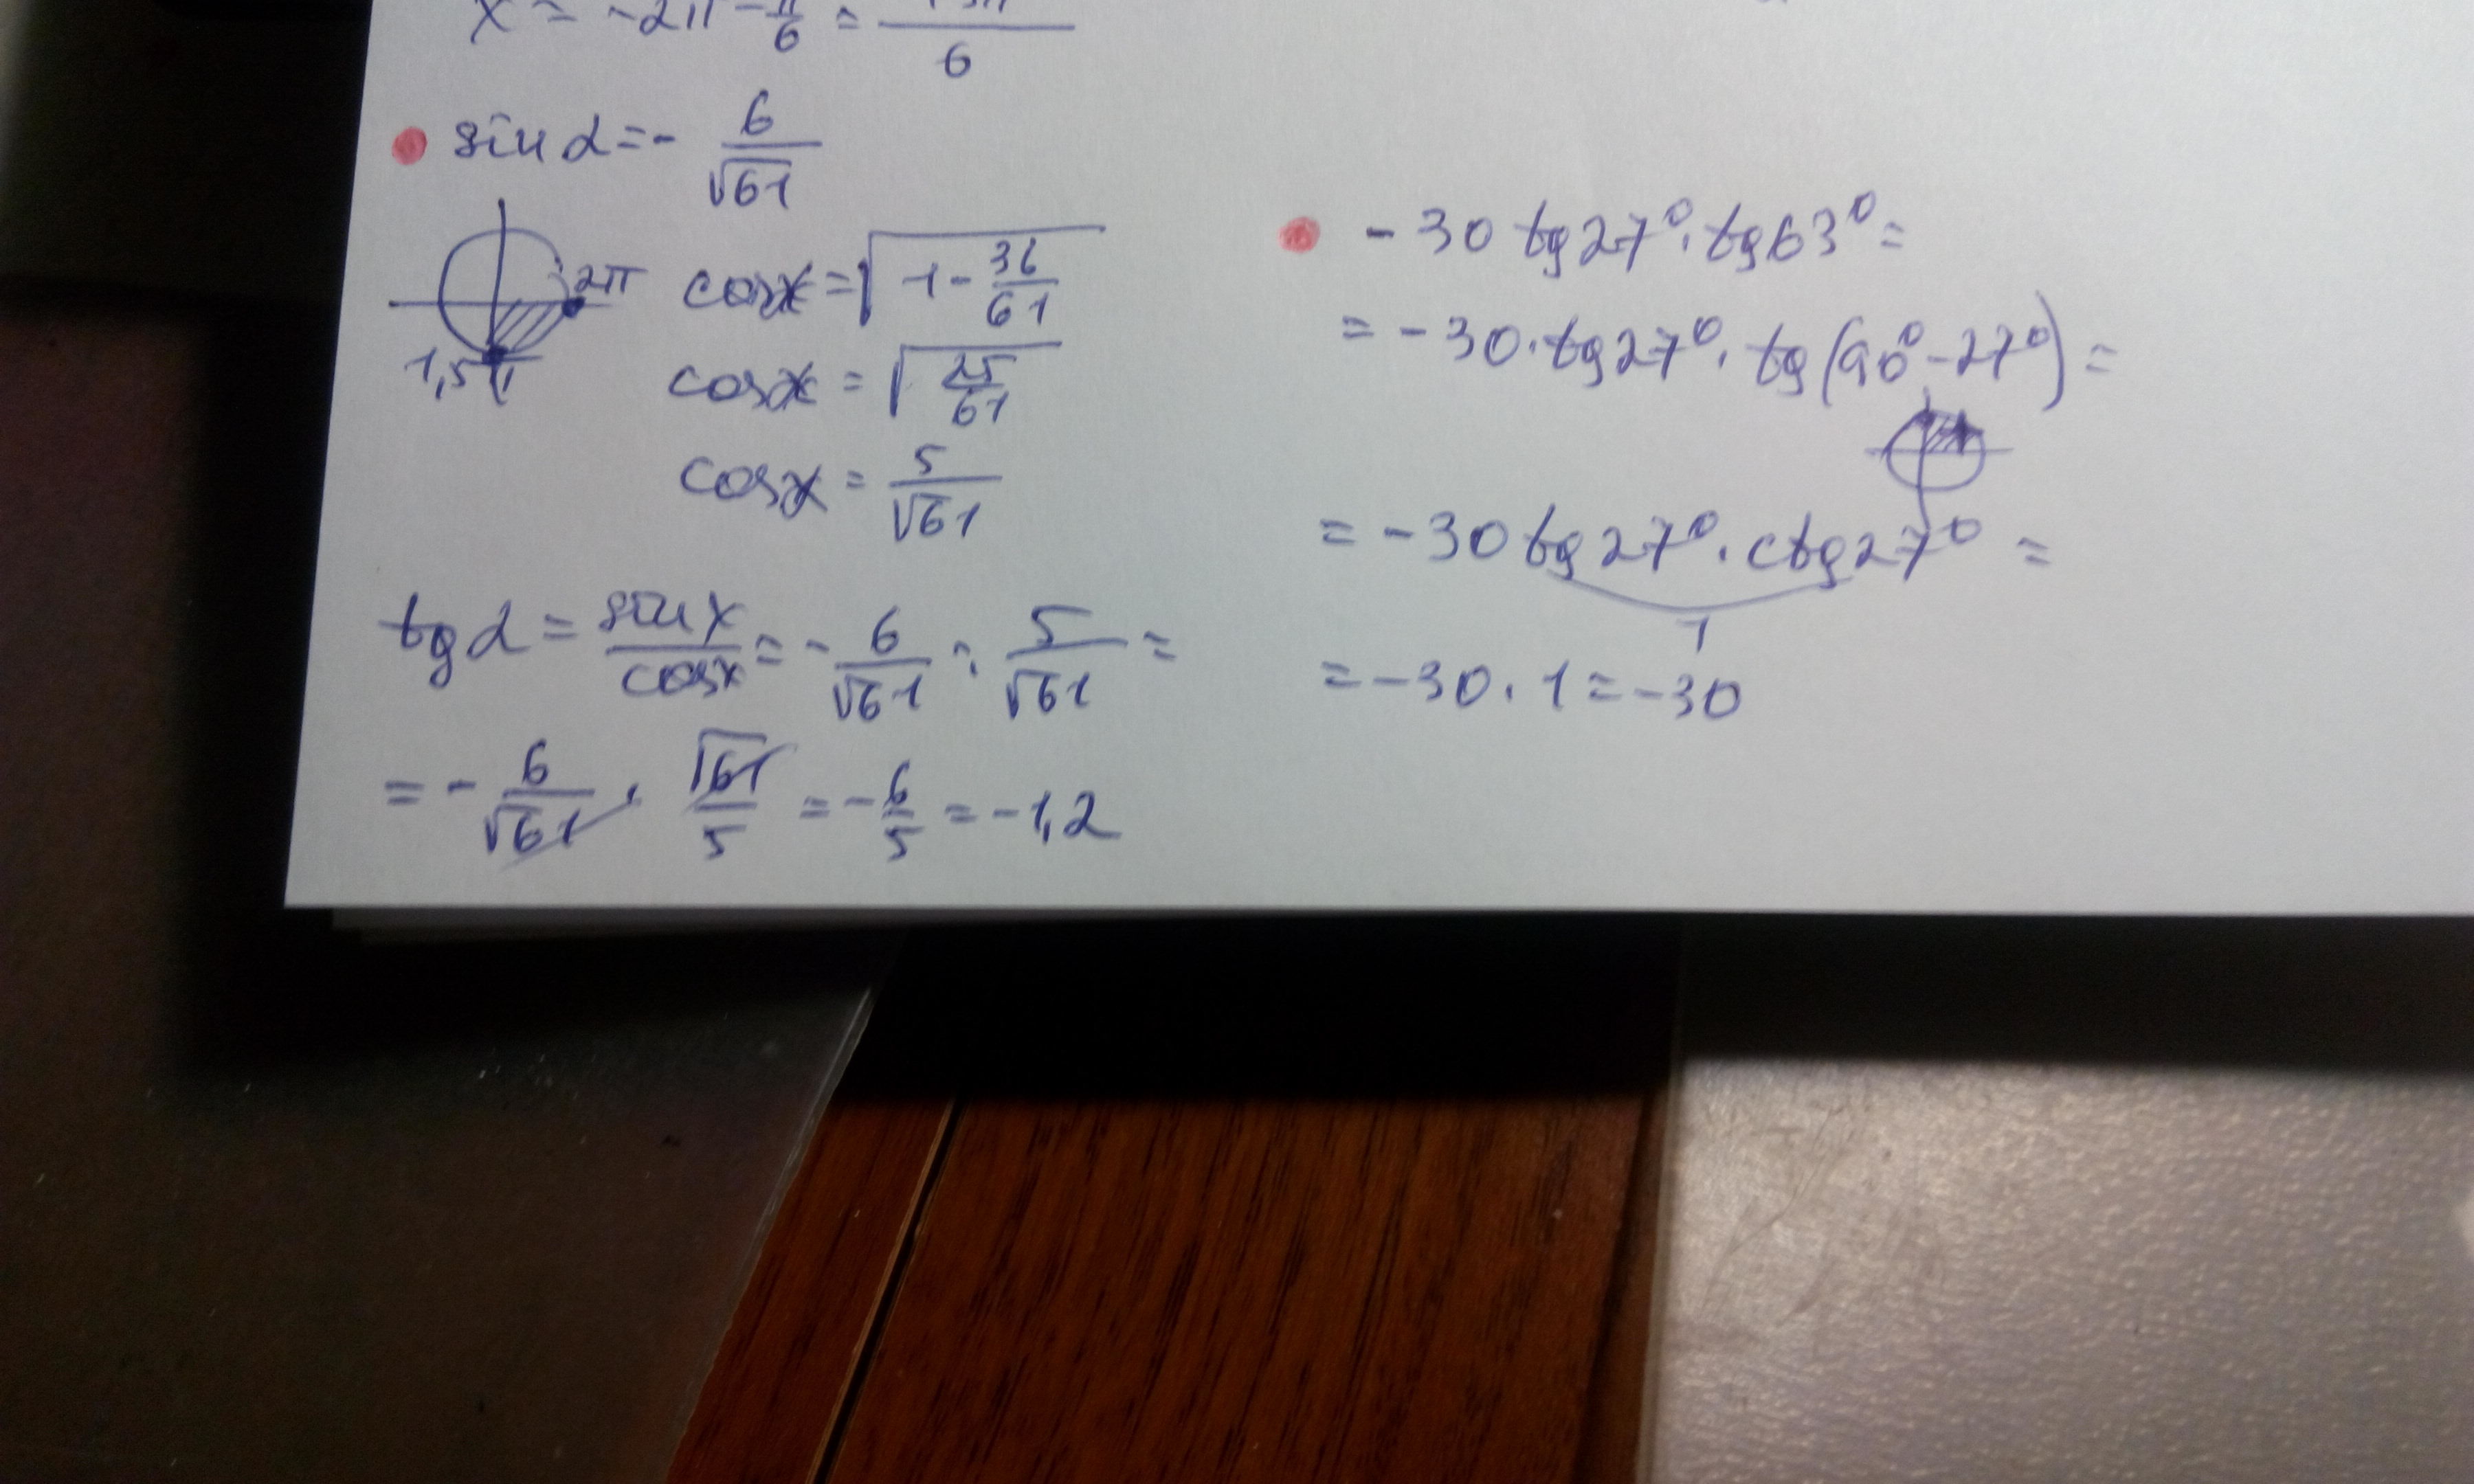 x = -2π - π/6 =  /6
sin α = - 6/√61
2π
1,5π
cos x = √(1 - 36/61)
cos x = √(25/61)
cos x = 5/√61
tg α = sin x/cos x = - 6/√61 : 5/√61 =
= - 6/√61 · √61/5 = - 6/5 = -1,2
- 30 tg 27° · tg 63° =
= - 30 · tg 27° · tg (90° - 27°) =
= - 30 tg 27° · ctg 27° =
1
= - 30 · 1 = - 30